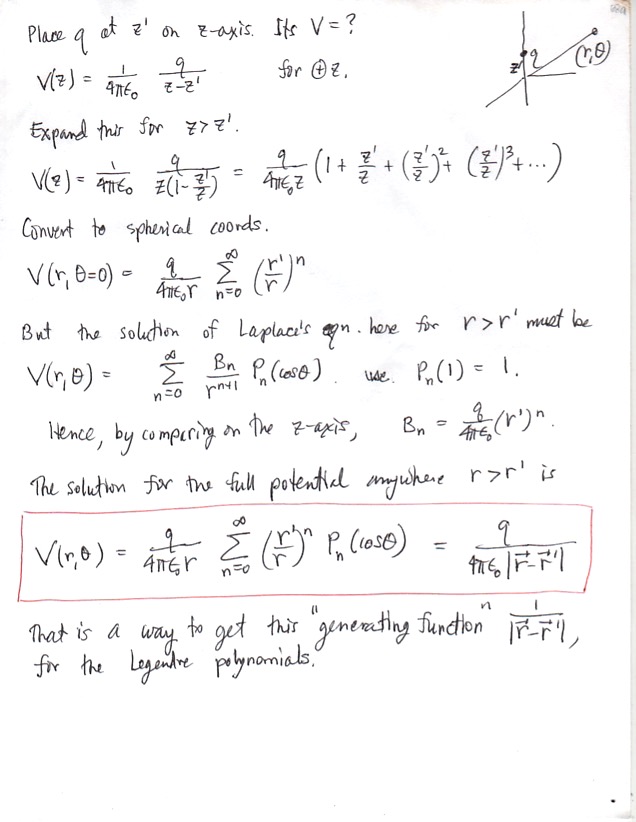 Place q at z' on z-axis. Its V = ?
V(z) = 1/4πε₀ q/z-z' for ⊕z.
z' q (r,θ)
Expand this for z>z'.
V(z) = 1/4πε₀ q/z(1-z'/z) = q/4πε₀z (1 + z'/z + (z'/z)² + (z'/z)³ + ...)
Convert to spherical coords.
V(r, θ=0) = q/4πε₀r ∑_{n=0}^{∞} (r'/r)ⁿ
But the solution of Laplace's eqn. here for r>r' must be
V(r,θ) = ∑_{n=0}^{∞} Bn/rⁿ⁺¹ Pn(cosθ). use. Pn(1) = 1.
Hence, by comparing on the z-axis, Bn = q/4πε₀ (r')ⁿ.
The solution for the full potential anywhere r>r' is
V(r,θ) = q/4πε₀r ∑_{n=0}^{∞} (r'/r)ⁿ Pn(cosθ) = q/4πε₀|r⃗-r⃗'|
That is a way to get this "generating function" 1/|r⃗-r⃗'|,
for the Legendre polynomials.